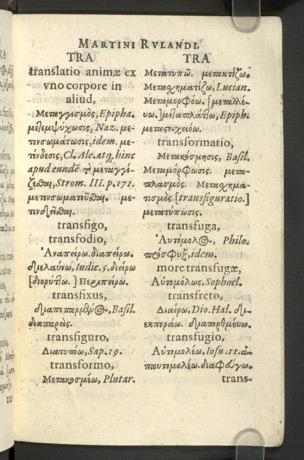 MARTINI RVLANDI.
TRA
translatio animæ ex
vno corpore in
aliud,
Μεταγγισμὸς, Epipha.
μετεμψύχωσις, Naz. με-
τενσωμάτωσις, idem. με-
Cl. Alex. atq; hinc
apud eundē
Strom. III. p. 171.
transfigo,
transfodio,
Ἀναπείρω. διαπείρω.
διελαύνω, Iudic. 5. διείρω
[διορύττω.] Περιπείρω.
transfixus,
Διαπεπαρμένος, Basil.
διαπαρείς.
transfiguro,
Διατυπόω, Sap. 19.
transformo,
Μετακοσμέω, Plutar.
TRA
Μετατυπῶ. μετακτίζω.
Μετασχηματίζω, Lucian.
Μεταμορφόω. [μεταλλεύω.]
μεταπλάττω, Epiph.
transformatio,
Μετακόσμησις, Basil.
Μεταμόρφωσις. μετα-
πλασμὸς. Μετασχημα-
τισμὸς. [transfiguratio.]
μετατύπωσις.
transfuga,
Αὐτόμολος, Philo.
πρόσφυξ, idem.
more transfugæ,
Αὐτομόλως, Sophocl.
transfreto,
Διαίρω, Dio. Hal. δι-
εκπεράω. διαπορθμεύω.
transfugio,
Αὐτομολέω, Iosu. 11. ἀ-
παυτομολέω. διαφεύγω.
trans-